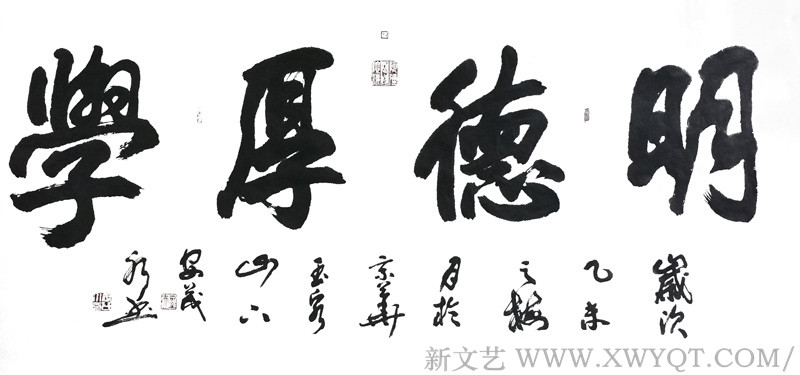 明德厚學
歲次乙未之梅月於京華玉泉山下
新文艺 WWW.XWYQT.COM/